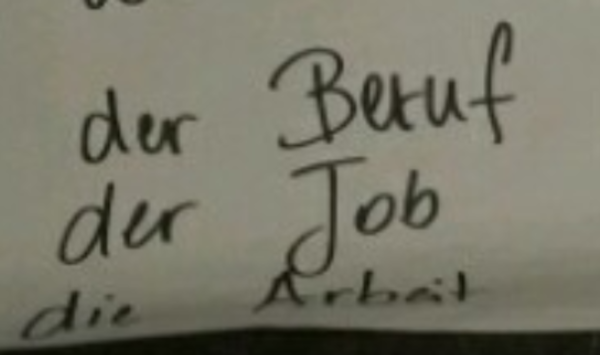 der Beruf
der Job
die Arbeit